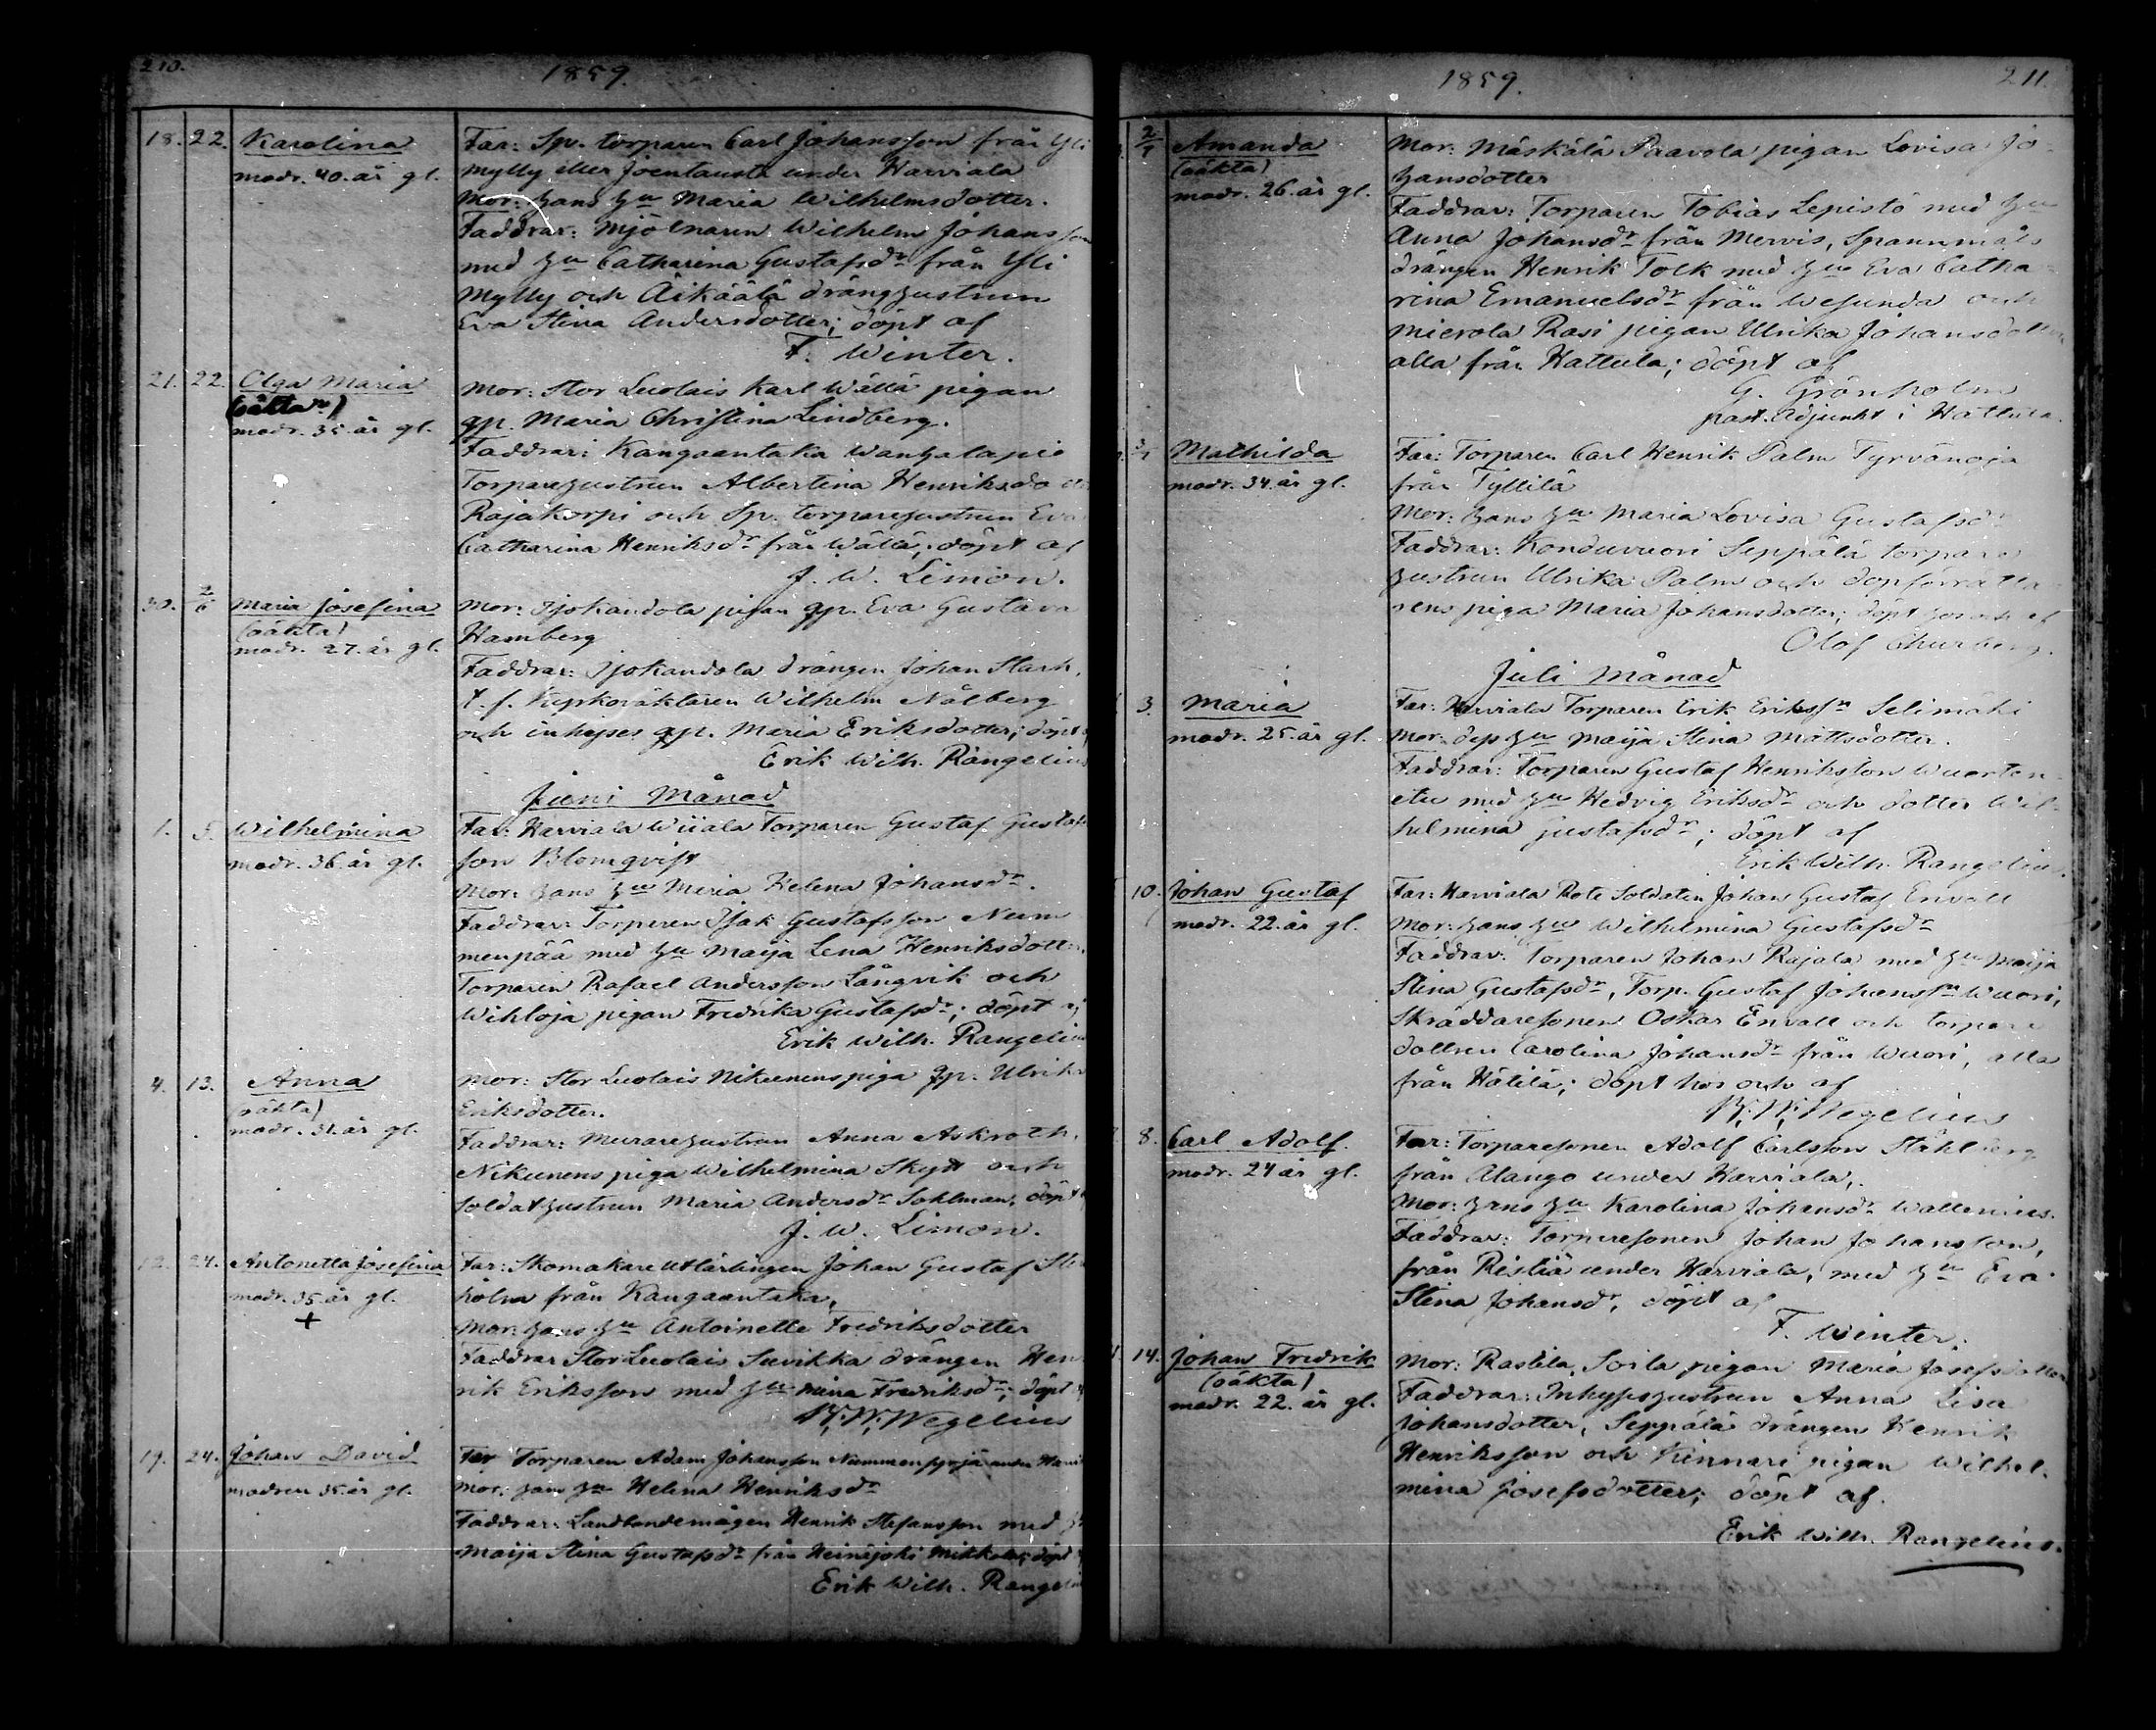 210.
1859.
18. 22. Karolina
modr. 40. år gl.
Far: Sp. torparen Carl Johansson från Yli
mylly eller Joentausta under Harviala
Mor: hans hu Maria Wilhelmsdotter.
Faddrar: Mjölnaren Wilhelm Johansson
med hu Catharina Gustafsdr från Yli
Mylly och Äikäälä dränghustrun
Eva Stina Andersdotter; döpt af
F. Winter.
21. 22. Olga Maria
modr. 35. år gl.
Mor: Stor Luolais Karl Wällä pigan
qp. Maria Christina Lindberg.
Faddrar: Kangaantaka
Torparehustrun Albertina Henriksdo
Rajakorpi och Sp. torparehustrun Eva
Catharina Henriksdr från Wällä; döpt af
J. W. Limón.
30. 2/6 Maria Josefina
(oäkta)
modr. 27. år gl.
Mor: Ijokandola pigan qp. Eva Gustava
Hamberg
Faddrar: Ijokandola drängen Johan Stark,
t. f. Kyrkoväktaren Wilhelm Nålberg
och inhyses qp. Maria Eriksdotter; döpt
Erik Wilh. Rangelius
Juni Månad
1. 5. Wilhelmina
modr. 36. år gl.
Far: Harviala Wiiala Torparen Gustaf Gustaf
son Blomqvist
Mor: hans hu Maria Helena Johansdr.
Faddrar: Torparen Isak Gustafsson Num
menpää med hu Maija Lena Henriksdotter,
Torparen Rafael Andersson Långvik och
Wihloja pigan Fredrika Gustafsdr; döpt af
Erik Wilh. Rangelius
4. 13. Anna
(oäkta)
modr. 31. år gl.
Mor: Stor Luolais Nikunens piga qp. Ulrika
Eriksdotter.
Faddrar: Murarehustrun Anna Askroth,
Nikunens piga Wilhelmina Skytt och
soldathustrun Maria Andersdr Sohlman, döpt
J. W. Limón.
12. 24. Antonetta Josefina
modr. 35. år gl.
+
Far: Skomakare Utlärlingen Johan Gustaf
holm från Kangaantaka,
Mor: hans hu Antoinette Fredriksdotter
Faddrar Stor Luolais Suvikka drängen Hen
rik Eriksson med hu Mina Fredriksdr; döpt
K. W. Wegelius
19. 24. Johan David
modren 35. år gl.
Far Torparen Adam Johansson under
Mor: hans hu Helena Henriksdr
Faddrar: Landbondemågen Henrik Stefansson med
Maija Stina Gustafsdr från Heinäjoki Mikkola; döpt
Erik Wilh. Rangelius
1859.
211.
2/7 Amanda
(oäkta)
modr. 26. år gl.
Mor: Mäskälä Paavola pigan Lovisa Jo
hansdotter
Faddrar: Torparen Tobias Lepistö med hu
Anna Johansdr från Mervis, Spannmåls
drängen Henrik Tolk med hu Eva Catha
rina Emanuelsdr från Wesunda och
Mierola Rasi pigan Ulrika Johansdotter
alla från Hattula; döpt af
G. Grönholm
past. Adjunkt i Hattula.
Mathilda
modr. 34. år gl.
Far: Torparen Carl Henrik Palm Tyrvänoja
från Tyllilä
Mor: hans hu Maria Lovisa Gustafsdr
Faddrar: Konduvuori Seppälä torpare
hustrun Ulrika Palm och dopförrätta
rens piga Maria Johansdotter; döpt hos och af
Olof Churberg.
Juli Månad
3. Maria
modr. 25. år gl.
Far: Harviala Torparen Erik Erikssn Selimäki
Mor: dess hu Maija Stina Mattsdotter.
Faddrar: Torparen Gustaf Henriksson Wuoren
etu med hu Hedvig Eriksdr och dotter Wil-
helmina Gustafsdr; döpt af
Erik Wilh. Rangelius.
10. Johan Gustaf
modr. 22. år gl.
Far: Harviala Rote Soldaten Johan Gustaf Envall
Mor: hans hu Wilhelmina Gustafsdr
Faddrar: Torparen Johan Rajala med hu Maija
Stina Gustafsdr, Torp. Gustaf Johanssn Wuori,
Skräddaresonen Oskar Envall och torpare
dottren Carolina Johansdr från Wuori, alla
från Hätilä; döpt hos och af
K. W. Wegelius
8. Carl Adolf.
modr. 24 år gl.
Far: Torparesonen Adolf Carlsson Ståhlberg
från Alango under Harviala,
Mor: hans hu Karolina Johansdr Wallenius.
Faddrar: Torparesonen Johan Johansson,
från Ristiä under Harviala, med hu Eva
Stina Johansdr, döpt af
F. Winter.
14. Johan Fredrik
(oäkta)
modr. 22. år gl.
Mor: Rastila, Soila pigan Maria Josefsdotter
Faddrar: Inhyseshustrun Anna Lisa
Johansdotter, Seppälä drängen Henrik
Henriksson och Kinnari pigan Wilhel-
mina Josefsdotter; döpt af.
Erik Wilh. Rangelius.